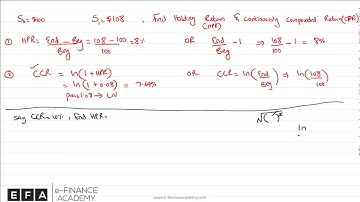 S₀ = $100 S₁ = $108 , Find Holding Return & Continuously Compounded Return (CCR)
(HPR)
① HPR = End - Beg / Beg = 108 - 100 / 100 = 8% OR End / Beg - 1 ⇒ 108 / 100 - 1 = 8%
② CCR = ln(1 + HPR) OR CCR = ln(End / Beg) ⇒ ln(108 / 100)
= ln(1 + 0.08) = 7.69%
1.08 → LN
Say CCR = 10% , Find HPR =
ln
EFA
e-FINANCE
ACADEMY
www.e-financeacademy.com